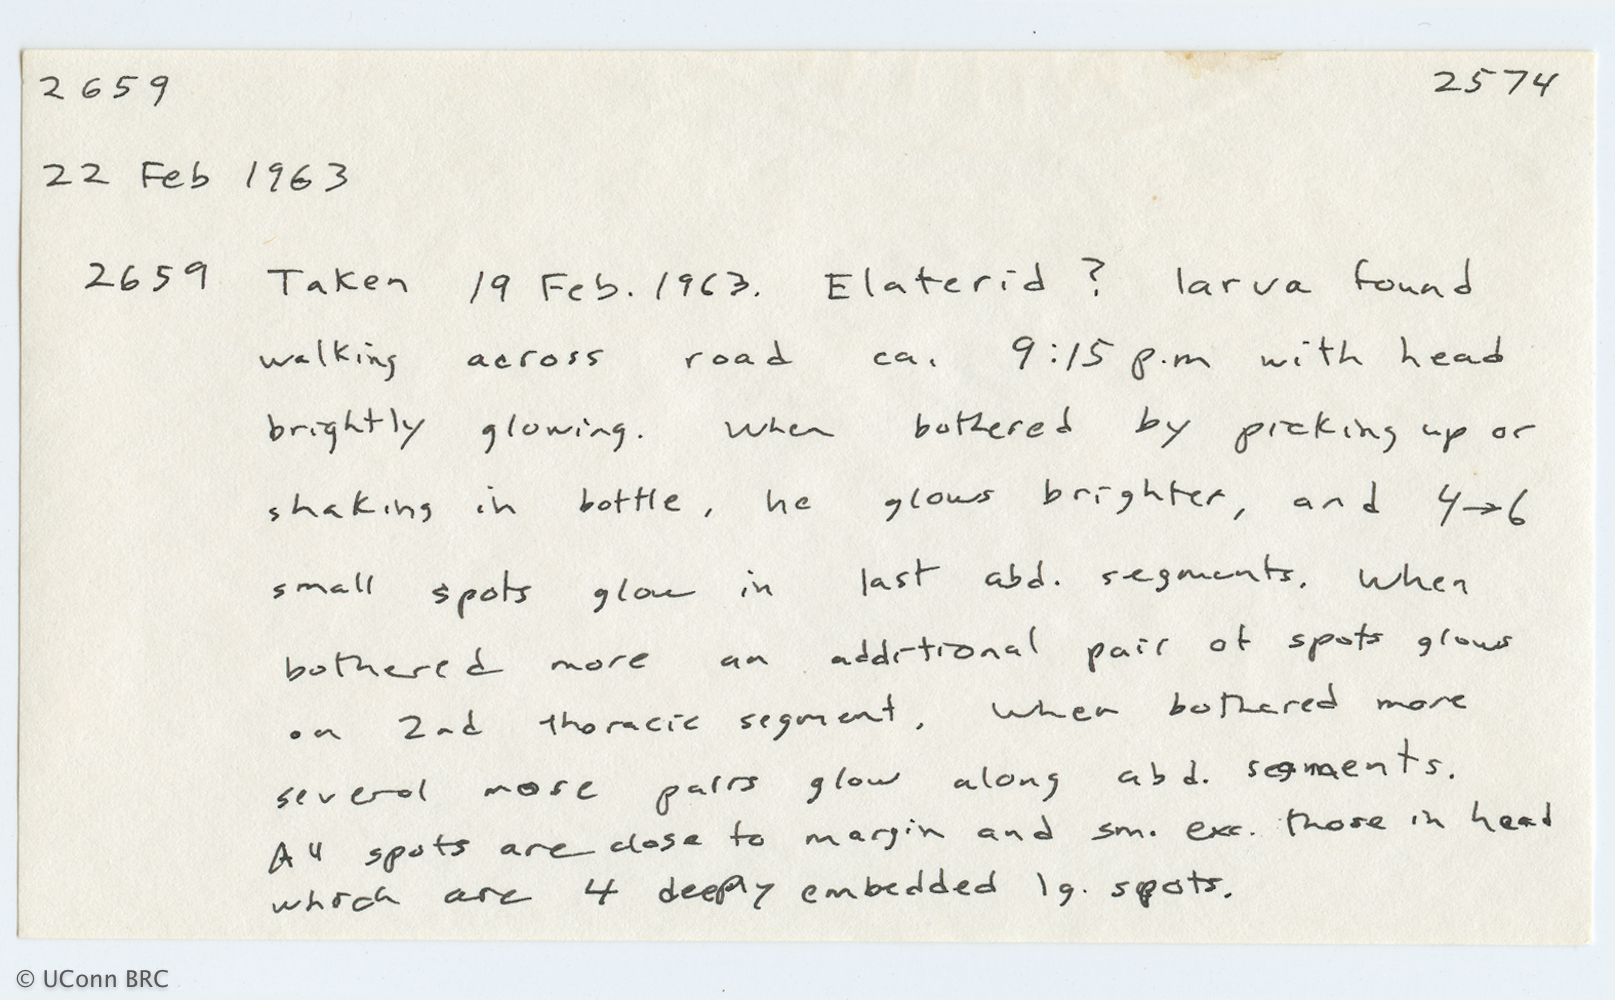 2659 2574
22 Feb 1963
2659 Taken 19 Feb. 1963. Elaterid? larva found
walking across road ca. 9:15 p.m with head
brightly glowing. When bothered by picking up or
shaking in bottle, he glows brighter, and 4→6
small spots glow in last abd. segments. When
bothered more an additional pair of spots glows
on 2nd thoracic segment. When bothered more
several more pairs glow along abd. segments.
All spots are close to margin and sm. exc. those in head
which are 4 deeply embedded lg. spots.
© UConn BRC